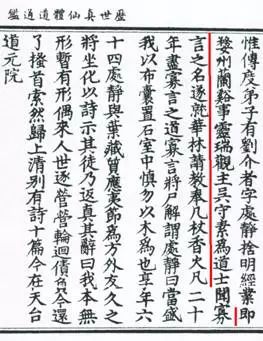 歷世真仙體道通鑑
惟傳度弟子有劉介者字處靜捨明經業即
婺州蘭谿事靈瑞觀主吳守素為道士聞寡
言之名遂就華林請教畢几杖香火凡二十
年盡寡言之道寡言將尸解謂處靜曰當盛
我以布囊置石室中慎勿以木為也享年六
十四處靜與葉藏質應夷節為方外友久之
將坐化以詩示其徒乃返真其辭曰我本無
形暫有形偶來人世逐營營輪迴債負今還
了搔首索然歸上清別有詩十篇今在天台
道元院